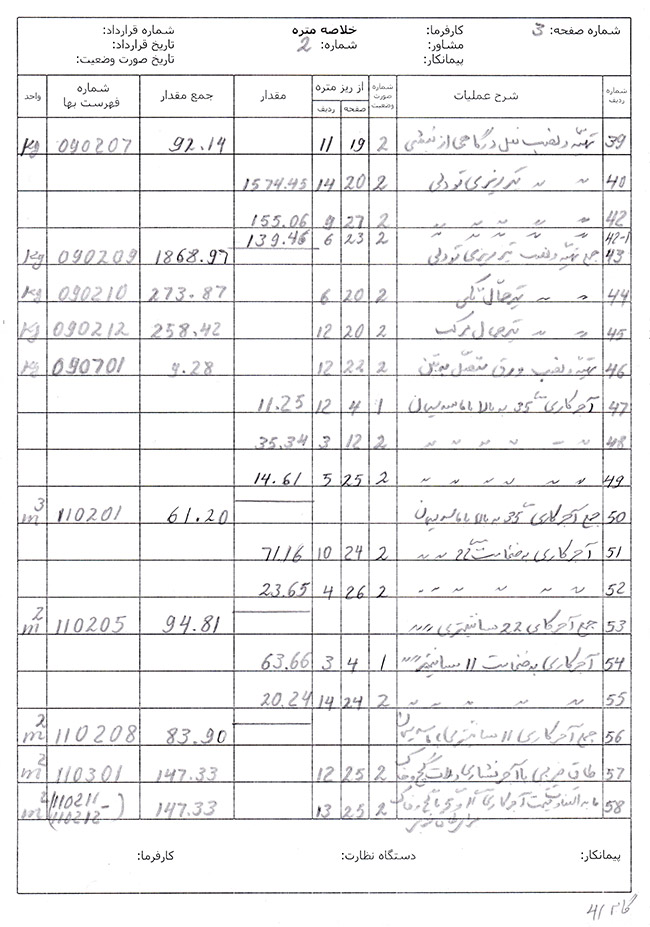 شماره صفحه: 3 کارفرما: خلاصه متره شماره قرارداد:
مشاور: شماره: 2 تاریخ قرارداد:
پیمانکار: تاریخ صورت وضعیت:
شماره ردیف شرح عملیات شماره صورت وضعیت از ریز متره صفحه ردیف مقدار جمع مقدار شماره فهرست بها واحد
39 تهیه و نصب نعل درگاهی از نبشی 2 19 11 92.14 090207 kg
40 " " تیرریزی تودلی 2 20 14 1574.45
42 " " " " " 2 27 9 155.06
42-1 " " " " " 2 23 6 139.46
43 جمع تهیه و نصب تیرریزی تودلی 1868.97 090209 kg
44 " " تیرحمال تکی 2 20 6 273.87 090210 kg
45 " " تیرحمال مرکب 2 20 12 258.42 090212 kg
46 تهیه و نصب ورق متصل به بتن 2 22 12 9.28 090701 kg
47 آجرکاری 35 به بالا با ماسه سیمان 1 4 12 11.25
48 " " " " " " 2 12 3 35.34
49 " " " " " " 2 25 5 14.61
50 جمع آجرکاری 35 به بالا با ماسه سیمان 61.20 110201 m3
51 آجرکاری به ضخامت 22 " " 2 24 10 71.16
52 " " " " " 2 26 4 23.65
53 جمع آجرکاری 22 سانتیمتری " " " 94.81 110205 m2
54 آجرکاری به ضخامت 11 سانتیمتر " " 1 4 3 63.66
55 " " " " " 2 24 14 20.24
56 جمع آجرکاری 11 سانتیمتری، ماسه سیمان 83.90 110208 m2
57 طاق ضربی با آجر فشاری و ملات گچ و خاک 2 25 12 147.33 110301 m2
58 مابه التفاوت قیمت آجرکاری 11 با گچ و خاک 2 25 13 147.33 (110211-110212) m2
پیمانکار: دستگاه نظارت: کارفرما:
41